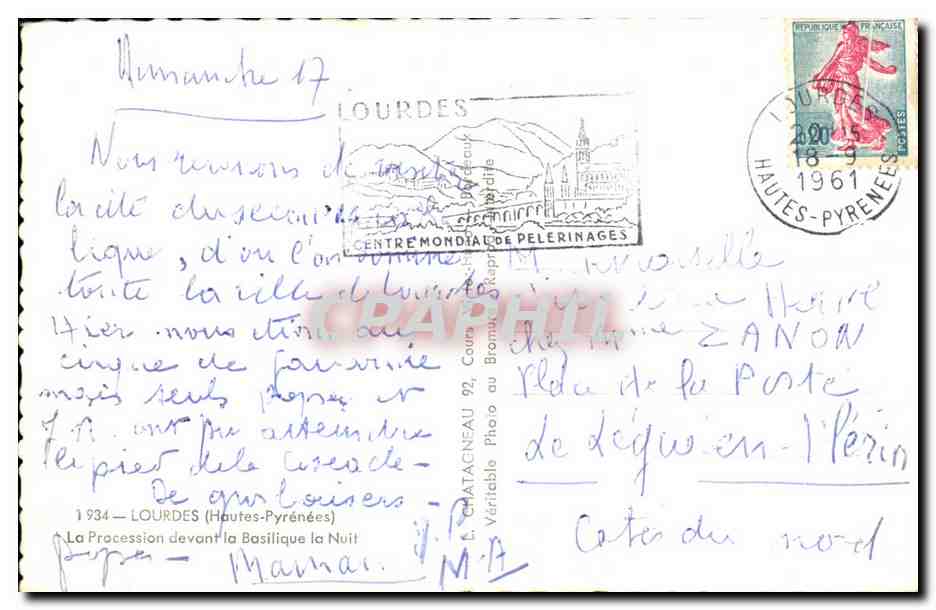 Dimanche 17
Nous revenons de visiter
la cité du secours
, d'où l'on domine
toute la ville de Lourdes
Hier nous étions au
cirque de Gavarnie
mais seuls papa et
J.P. ont pu atteindre
le pied de la cascade -
De gros baisers -
J.P.
papa - Maman. M-A
1934 — LOURDES (Hautes-Pyrénées)
La Procession devant la Basilique la Nuit
E. CHATAGNEAU 92, Cours Bordeaux
Véritable Photo au Bromure Reproduction Interdite
LOURDES
CENTRE MONDIAL DE PELERINAGES
REPUBLIQUE FRANÇAISE
0,20
POSTES
LOURDES
18-9
1961
HAUTES-PYRENEES
Mademoiselle
Hervé
chez Mme ZANON
Place de la Poste
Le Légué en Plérin
Côtes du nord
CPAPHIL